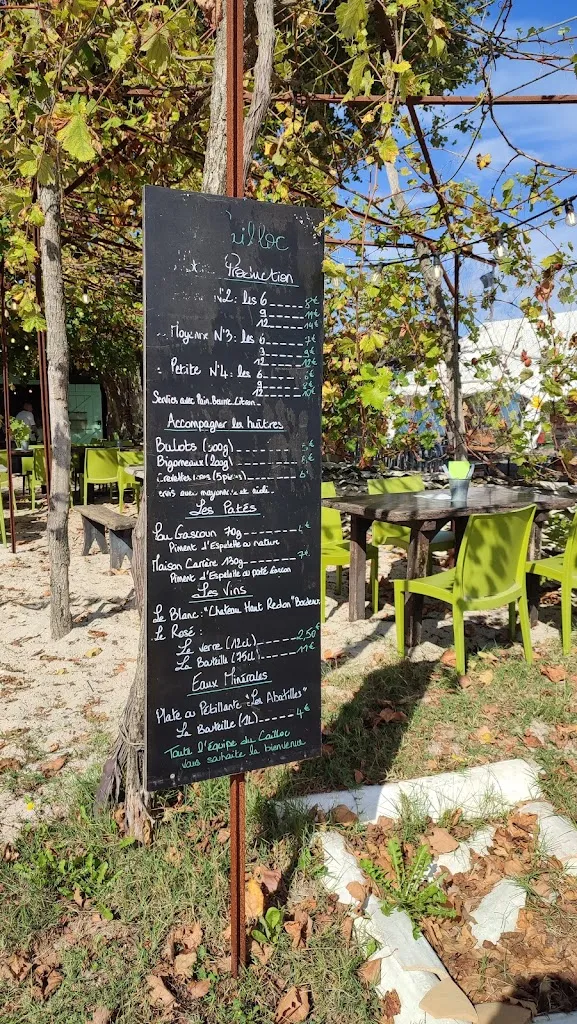 Cailloc
Production
N°2: les 6 8€
9 11€
12 14€
Moyenne N°3: les 6 7€
9 9€
12 12€
Petite N°4: les 6
9 8€
12 10€
Servies avec Pain, Beurre, Citron
Accompagner les huîtres
Bulots (200g)
Bigorneaux (200g)
Crevettes roses (5 pièces) 6€
servis avec mayonnaise et aïoli
Les Patés
Lou Gascoun 70g
Piment d'Espelette ou nature
Maison Cartére 130g 7€
Piment d'Espelette ou paté Gascon
Les Vins
Le Blanc: "Chateau Haut Redon" Bordeaux
Le Rosé:
Le verre (12cl) 2,50€
La Bouteille (75cl) 11€
Eaux Minérales
Plate ou Pétillante "Les Abatilles"
La Bouteille (1L) 4€
Toute l'équipe du Cailloc
vous souhaite la bienvenue